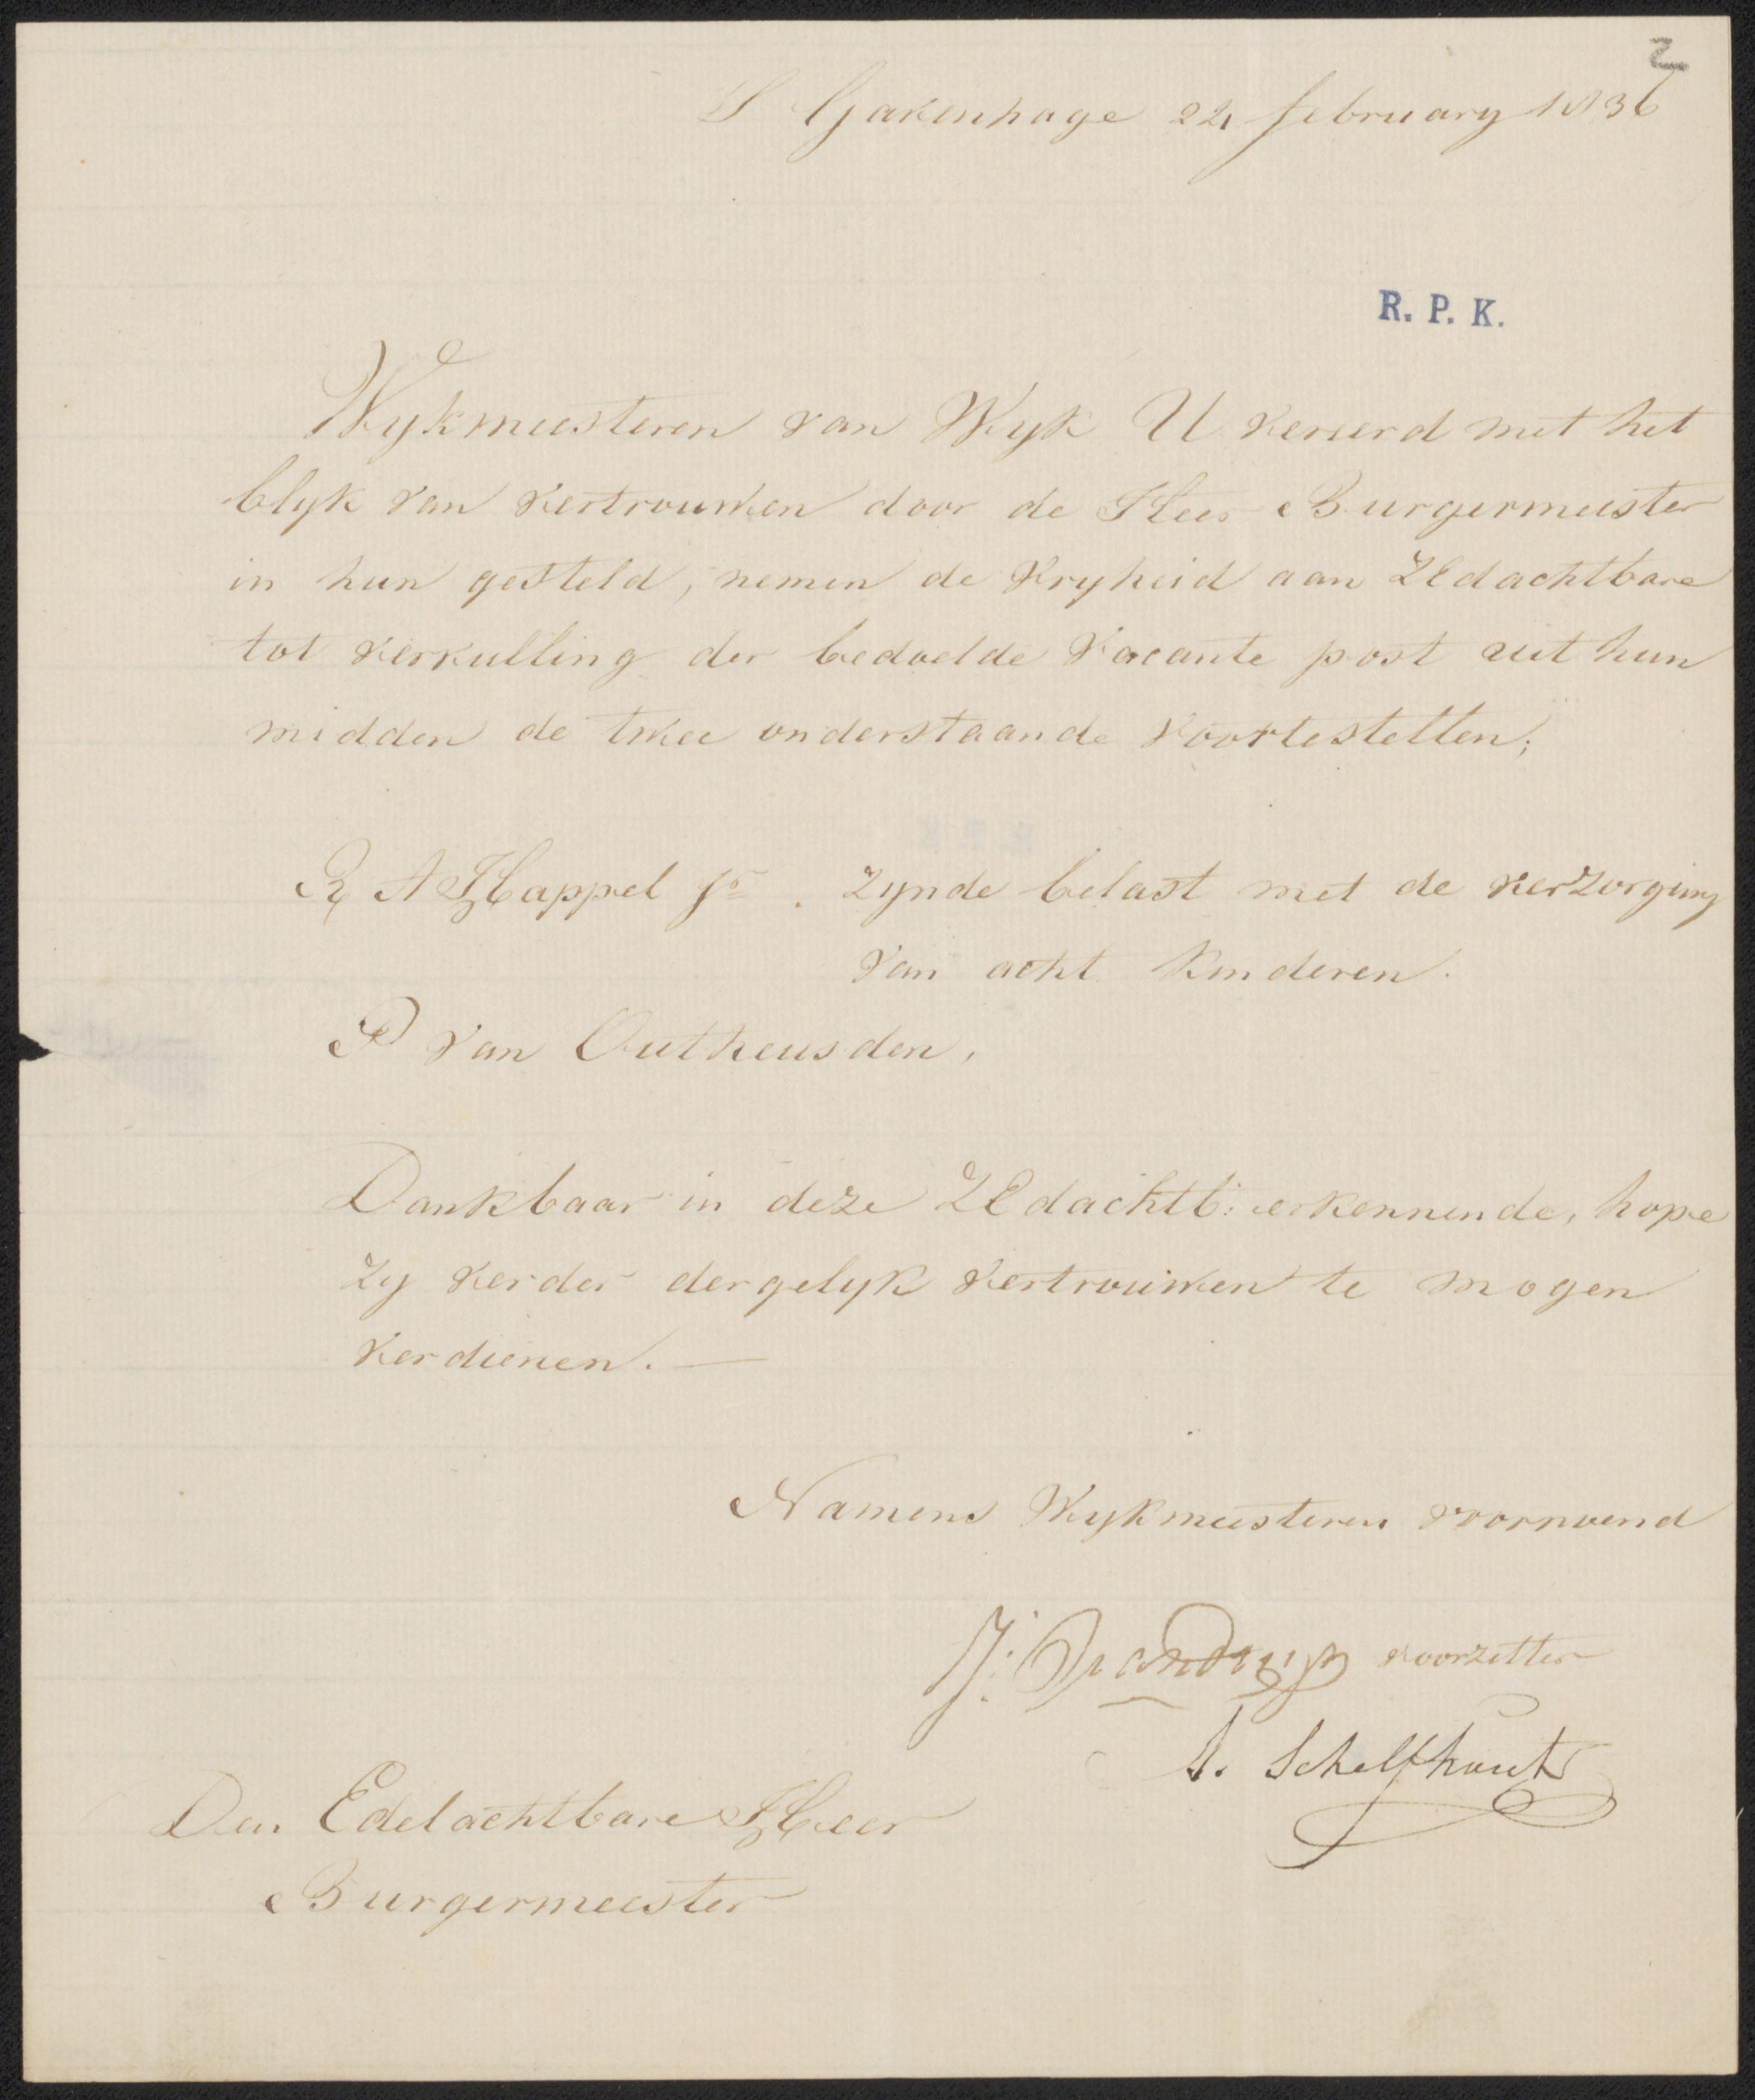 2
S Gravenhage 22 february 1836
R. P. K.
Wykmeesteren van Wyk U vereerd met het
blyk van vertrouwen door de Heer Burgermeester
in hun gesteld, nemen de vryheid aan ZEdachtbare
tot vervulling der bedoelde vacante post uit hun
midden de twee onderstaande voortestellen;
A Happel Jr. zynde belast met de verzorging
van acht kinderen.
P van Outheusden,
Dankbaar in deze ZEdachtb: erkennende, hope
zy verder dergelyk vertrouwen te mogen
verdienen. —
Namens Wykmeesteren voornoend
voorzitter
A. Schelfhout
Den Edelachtbare Heer
Burgermeester